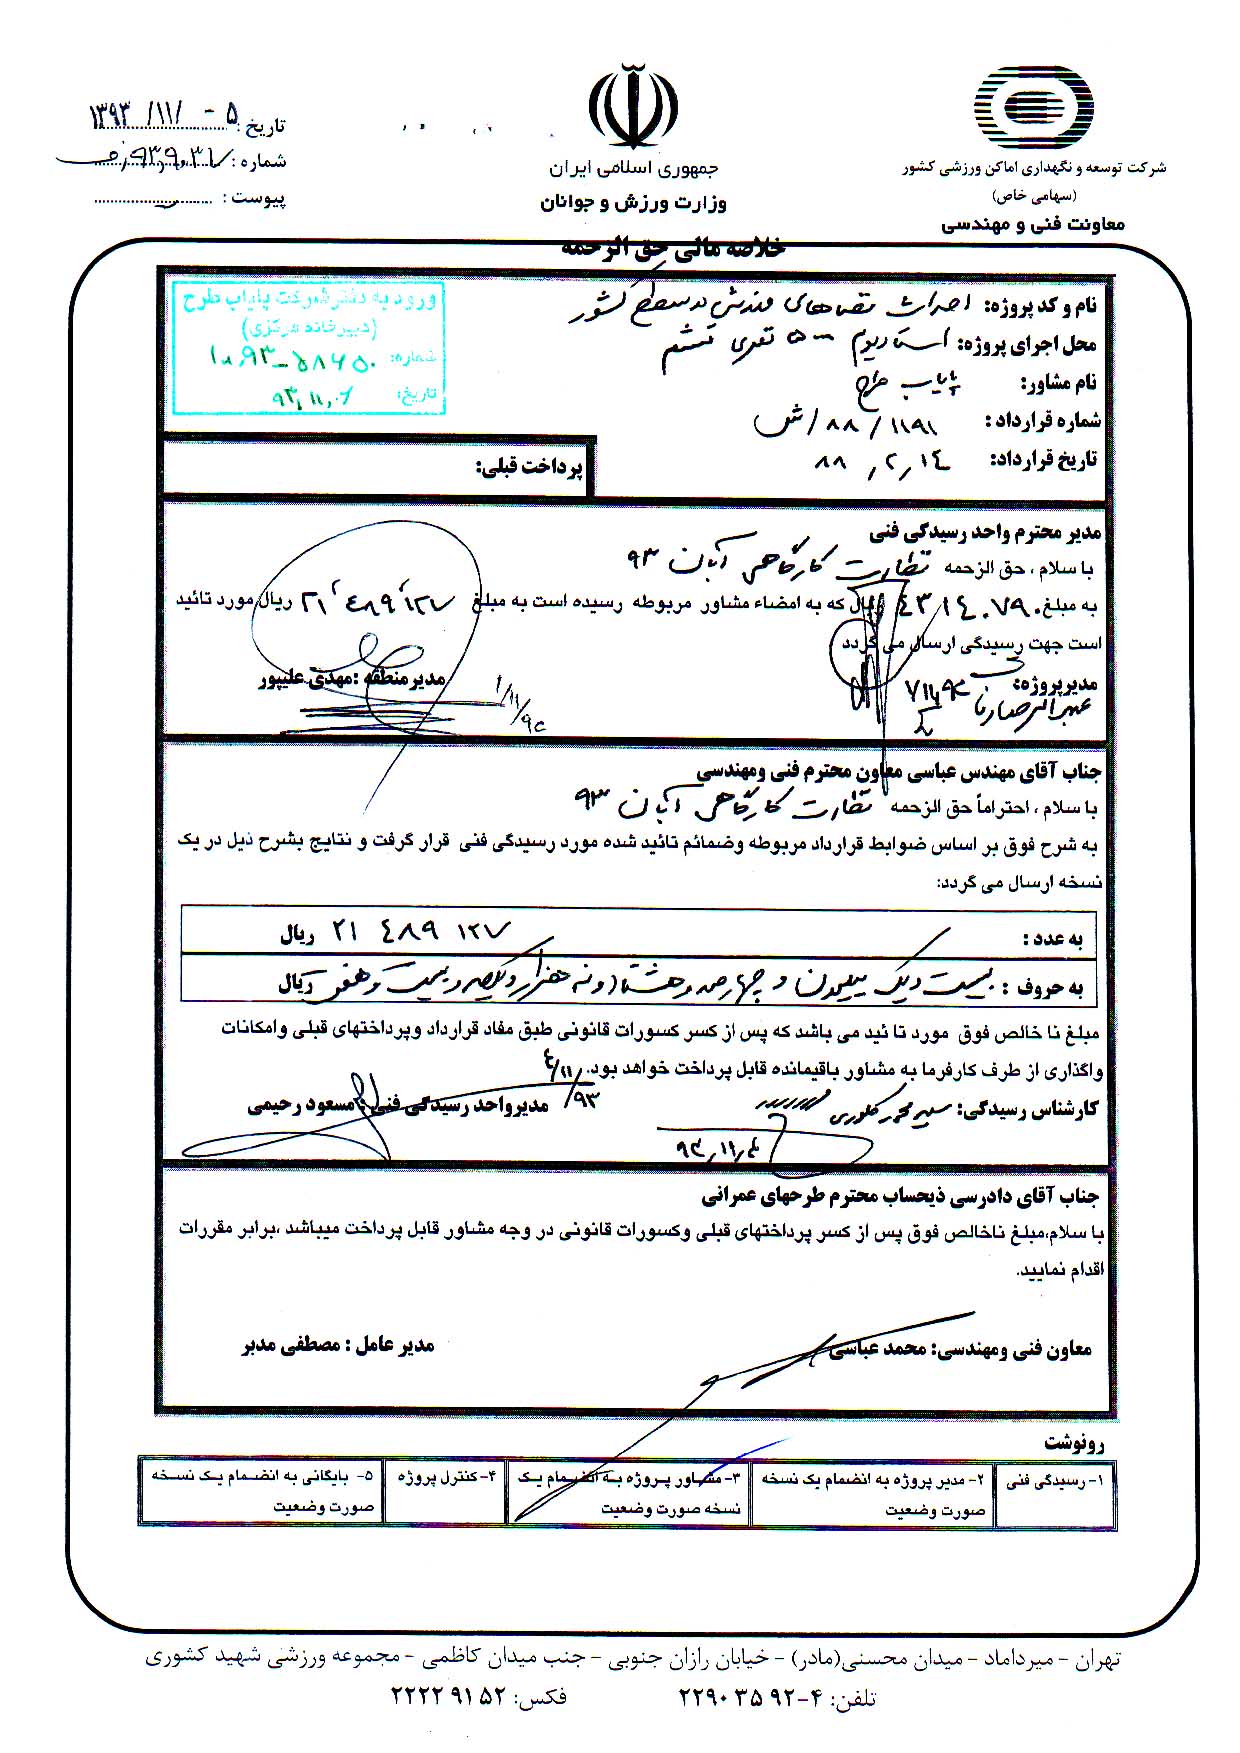 شرکت توسعه و نگهداری اماکن ورزشی کشور
(سهامی خاص)
معاونت فنی و مهندسی
جمهوری اسلامی ایران
وزارت ورزش و جوانان
تاریخ: ۱۳۹۳/۱۱/۰۵
شماره:
پیوست:
خلاصه مالی حق الزحمه
ورود به دفتر شرکت پایاب طرح
(دبیرخانه مرکزی)
شماره:
تاریخ: ۹۳,۱۱,۰۶
نام و کد پروژه: احداث فضاهای ورزشی در سطح کشور
محل اجرای پروژه: استادیوم ۵۰۰ نفری
نام مشاور: پایاب طرح
شماره قرارداد: ۸۸/۱۱۹۱/ش
تاریخ قرارداد: ۸۸,۲,۱۴
پرداخت قبلی:
مدیر محترم واحد رسیدگی فنی
با سلام، حق الزحمه نظارت کارگاهی آبان ۹۳
به مبلغ ۴۳,۱۴۰,۷۹۰ ریال که به امضاء مشاور مربوطه رسیده است به مبلغ ۲۱٬۴۸۹٬۱۲۷ ریال مورد تائید
است جهت رسیدگی ارسال می گردد
مدیرپروژه:
مدیرمنطقه: مهدی علیپور
جناب آقای مهندس عباسی معاون محترم فنی ومهندسی
با سلام، احتراماً حق الزحمه نظارت کارگاهی آبان ۹۳
به شرح فوق بر اساس ضوابط قرارداد مربوطه وضمائم تائید شده مورد رسیدگی فنی قرار گرفت و نتایج بشرح ذیل در یک
نسخه ارسال می گردد:
به عدد: ۲۱ ۴۸۹ ۱۲۷ ریال
به حروف: بیست و یک میلیون و چهارصد و هشتاد و نه هزار و یکصد و بیست و هفت ریال
مبلغ نا خالص فوق مورد تا ئید می باشد که پس از کسر کسورات قانونی طبق مفاد قرارداد وپرداختهای قبلی وامکانات
واگذاری از طرف کارفرما به مشاور باقیمانده قابل پرداخت خواهد بود.
کارشناس رسیدگی:
مدیرواحد رسیدگی فنی: مسعود رحیمی
۹۳,۱۱,۴
جناب آقای دادرسی ذیحساب محترم طرحهای عمرانی
با سلام،مبلغ ناخالص فوق پس از کسر پرداختهای قبلی وکسورات قانونی در وجه مشاور قابل پرداخت میباشد ،برابر مقررات
اقدام نمایید.
معاون فنی ومهندسی: محمد عباسی
مدیر عامل: مصطفی مدبر
رونوشت
۱- رسیدگی فنی
۲- مدیر پروژه به انضمام یک نسخه
صورت وضعیت
۳- مشاور پروژه به انضمام یک
نسخه صورت وضعیت
۴- کنترل پروژه
۵- بایگانی به انضمام یک نسخه
صورت وضعیت
تهران - میرداماد - میدان محسنی(مادر) - خیابان رازان جنوبی - جنب میدان کاظمی - مجموعه ورزشی شهید کشوری
تلفن: ۴-۲۲۹۰۳۵۹۲ فکس: ۲۲۲۲۹۱۵۲